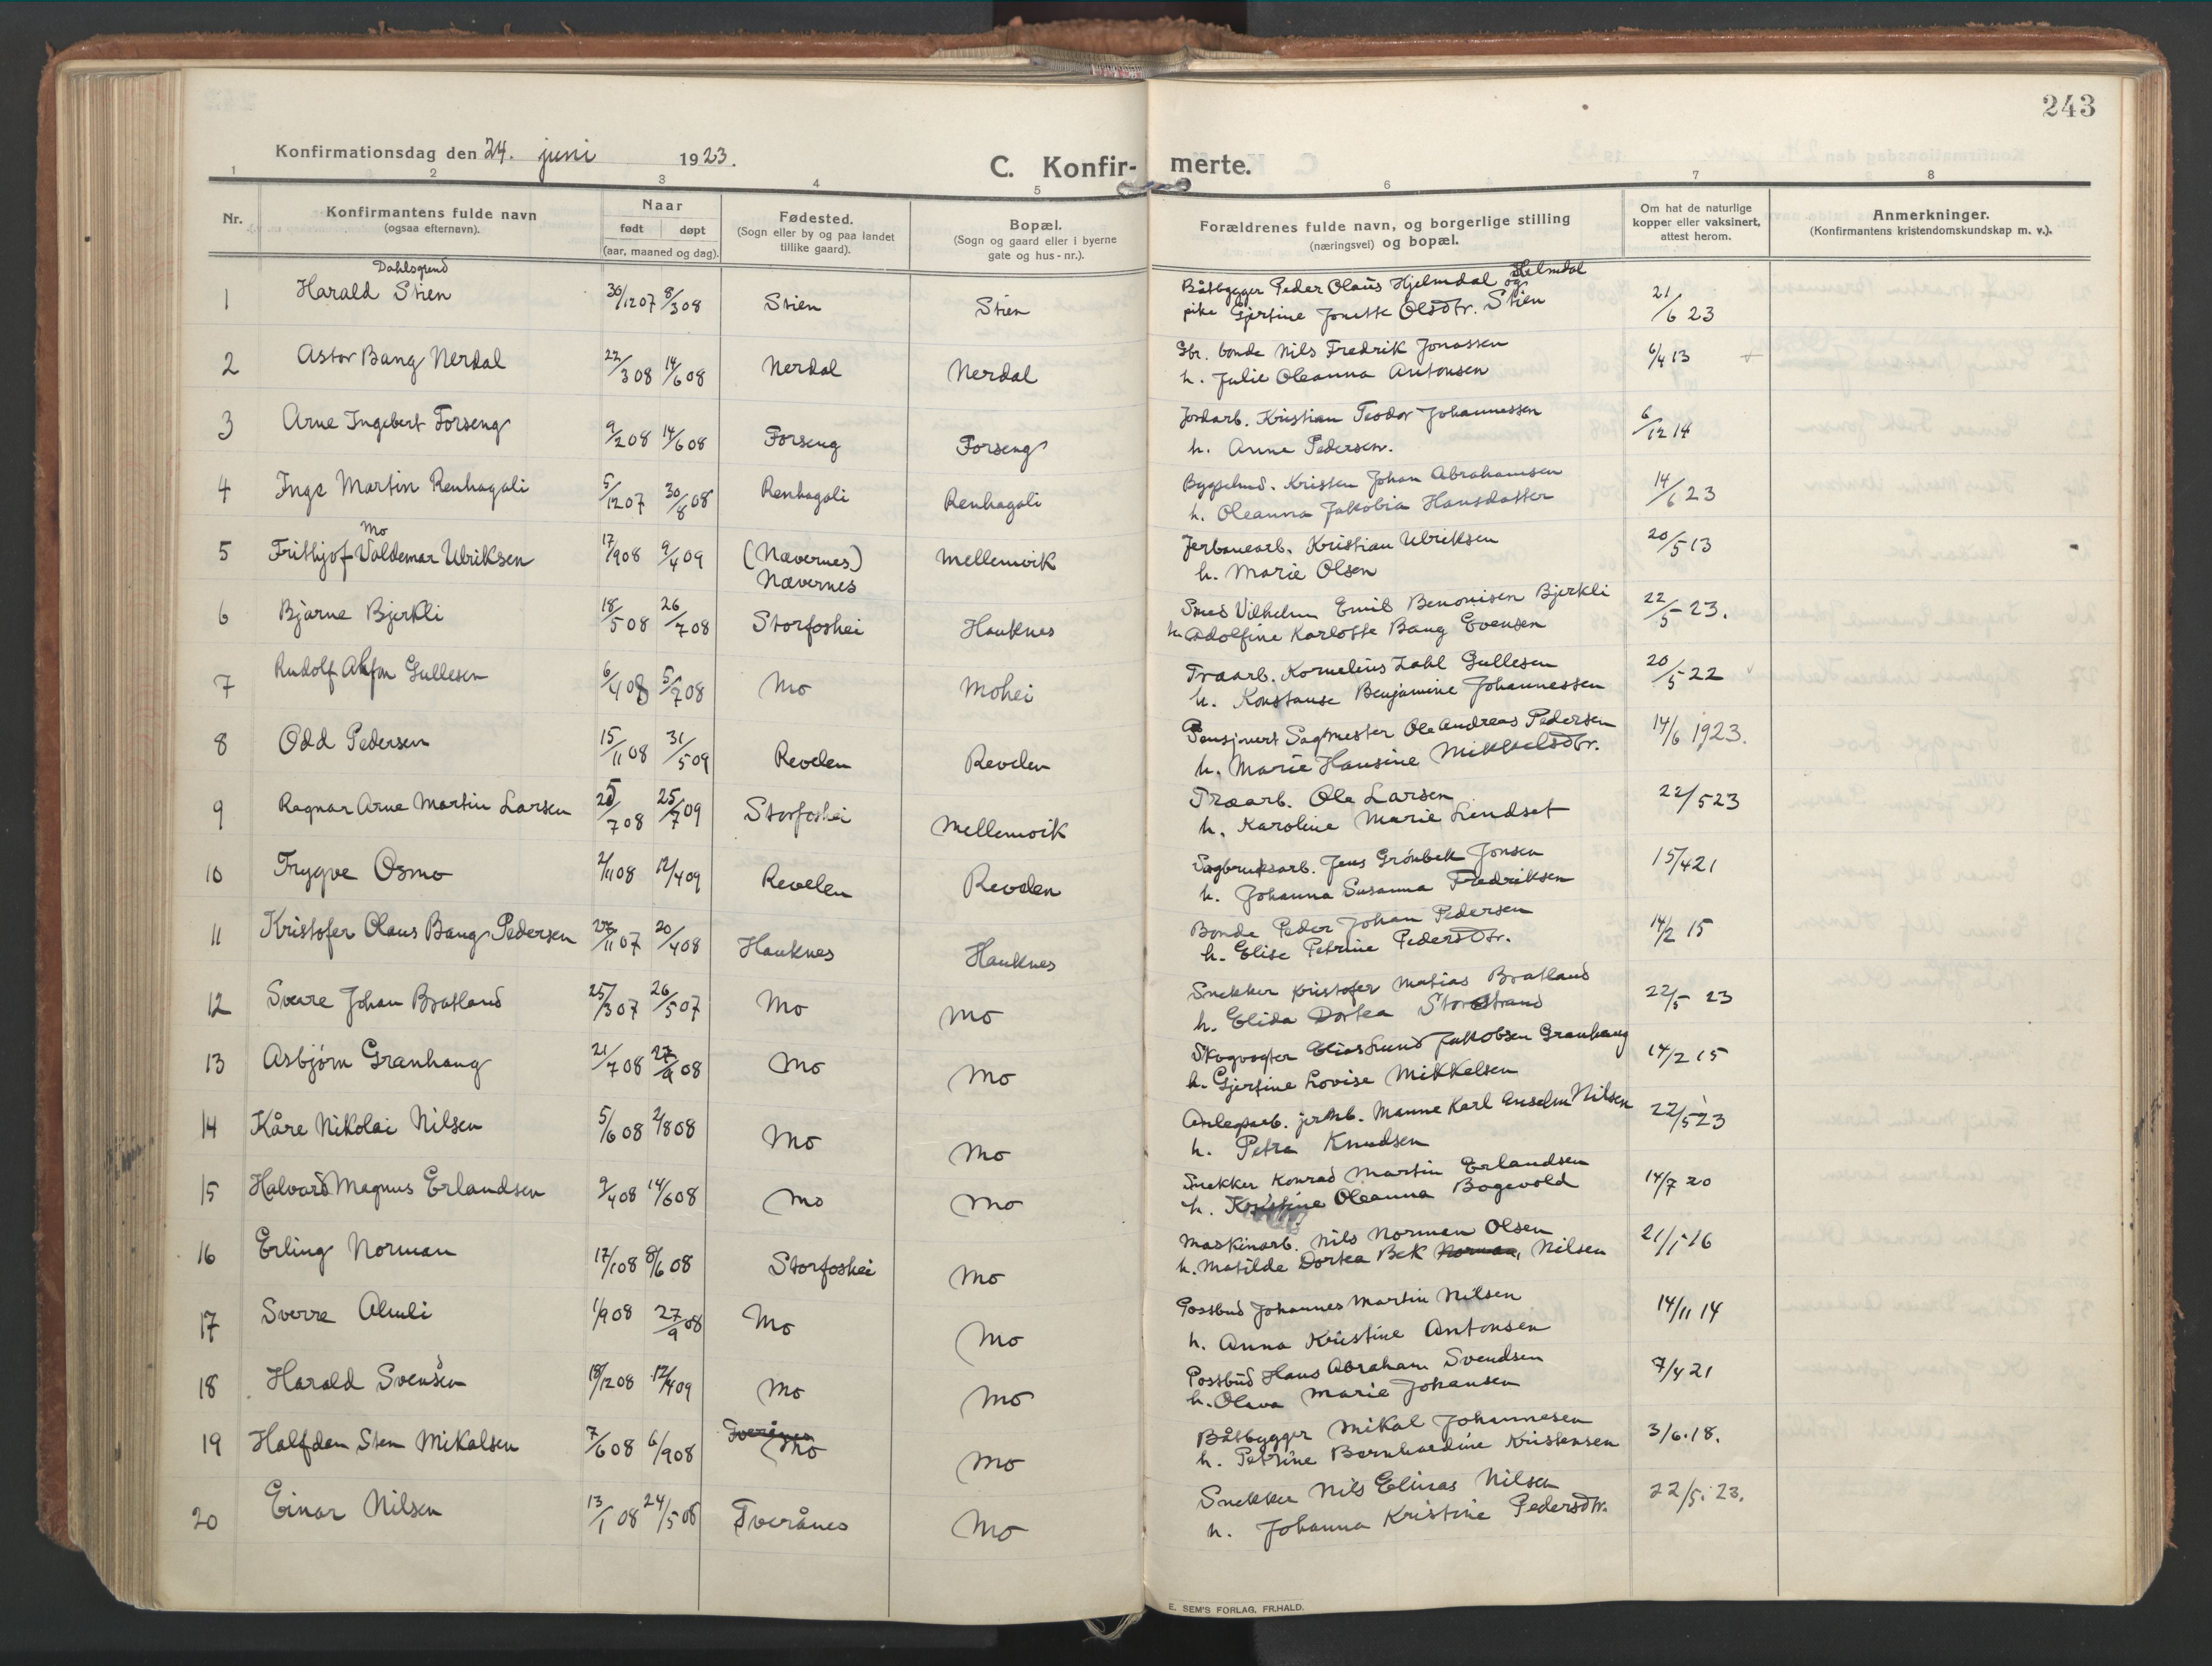 243
Konfirmationsdag den 24. juni 1923.
C. Konfir- merte.
1 2 3 4 5 6 7 8
Nr.
Konfirmantens fulde navn
(ogsaa efternavn).
Naar
født døpt
(aar, maaned og dag).
Fødested.
(Sogn eller by og paa landet
tillike gaard).
Bopæl.
(Sogn og gaard eller i byerne
gate og hus-nr.).
Forældrenes fulde navn, og borgerlige stilling
(næringsvei) og bopæl.
Om hat de naturlige
kopper eller vaksinert,
attest herom.
Anmerkninger.
(Konfirmantens kristendomskundskap m. v.).
Dahlsgrend
1 Harald Stien 30/12 07 8/3 08 Stien Stien Båtbygger Peder Olaus Hjelmdal og Helmdal 21/6 23
pike Gjertine Jonette Olsdtr. Stien
2 Astor Bang Nerdal 22/3 08 14/6 08 Nerdal Nerdal Gbr. bonde Nils Fredrik Jonassen 6/4 13
h. Julie Oleanna Antonsen
3 Arne Ingebert Forseng 9/2 08 14/6 08 Forseng Forseng Jordarb. Kristian Teodor Johannessen 6/12 14
h. Anna Pedersen.
4 Inge Martin Renhagali 5/12 07 30/8 08 Renhagali Renhagali Bygselmd. Kristen Johan Abrahamsen 14/6 23
h. Oleanna Jakobia Hansdatter
Mo
5 Frithjof Valdemar Ulriksen 17/9 08 9/4 09 (Nævernes) Mellemvik Jerbanearb. Kristian Ulriksen 20/5 13
Nævernes h. Marie Olsen
6 Bjarne Bjerkli 18/5 08 26/7 08 Storfoshei Hauknes Smed Vilhelm Emil Benonisen Bjerkli 22/5 - 23.
h. Adolfine Karlotte Bang Evensen
7 Rudolf Alfon Gullesen 6/4 08 5/7 08 Mo Mohei Træarb. Kornelius Zahl Gullesen 20/5 22
h. Konstanse Benjamine Johannessen
8 Odd Pedersen 15/11 08 31/5 09 Revelen Revelen Pensjonert Sagmester Ole Andreas Pedersen 14/6 1923.
h. Marie Hansine Mikkelsdtr.
9 Ragnar Arne Martin Larsen 25/7 08 25/7 09 Storfoshei Mellemvik Træarb. Ole Larsen 22/5 23
h. Karoline Marie Lendset
10 Trygve Osmo 2/11 08 12/4 09 Revelen Revelen Sagbruksarb. Jens Grönbek Jonsen 15/4 21
h. Johanna Susanna Fredriksen
11 Kristofer Olaus Bang Pedersen 27/11 07 20/4 08 Hauknes Hauknes Bonde Peder Johan Pedersen 14/2 15
h. Elise Petrine Pedersdtr.
12 Sverre Johan Bratland 25/3 07 26/5 07 Mo Mo Snekker Kristofer Matias Bratland 22/5 - 23
h. Elida Dortea Storstrand
13 Asbjörn Granhaug 21/7 08 27/9 08 Mo Mo Skogvogter Elias Lund Jakobsen Granhaug 14/2 15
h. Gjertine Lovise Mikkelsen
14 Kåre Nikolai Nilsen 5/6 08 2/8 08 Mo Mo Anlegsarb. jernb. Manne Karl Anselm Nilsen 22/5 23
h. Petra Knudsen
15 Halvard Magnus Erlandsen 9/4 08 14/6 08 Mo Mo Snekker Konrad Martin Erlandsen 14/7 20
h. Kristine Oleanna Bogevold
16 Erling Norman 17/1 08 8/6 08 Storfoshei Mo Maskinarb. Nils Norman Olsen 21/1 - 16
h. Matilde Dortea Bek Norman, Nilsen
17 Sverre Almli 1/9 08 27/9 08 Mo Mo Postbud Johannes Martin Nilsen 14/11 14
h. Anna Kristine Antonsen
18 Harald Svendsen 18/12 08 12/4 09 Mo Mo Postbud Hans Abraham Svendsen 7/4 21
h. Olava Marie Johansen
19 Halfdan Sten Mikalsen 7/6 08 6/9 08 Tverånes Mo Mo Båtbygger Mikal Johannesen 3/6. 18.
h. Petrine Bernhardine Kristensen
20 Einar Nilsen 13/1 08 24/5 08 Tverånes Mo Snekker Nils Elinas Nilsen 22/5. 23.
h. Johanna Kristine Pedersdtr.
E. SEM'S FORLAG. FR.HALD.